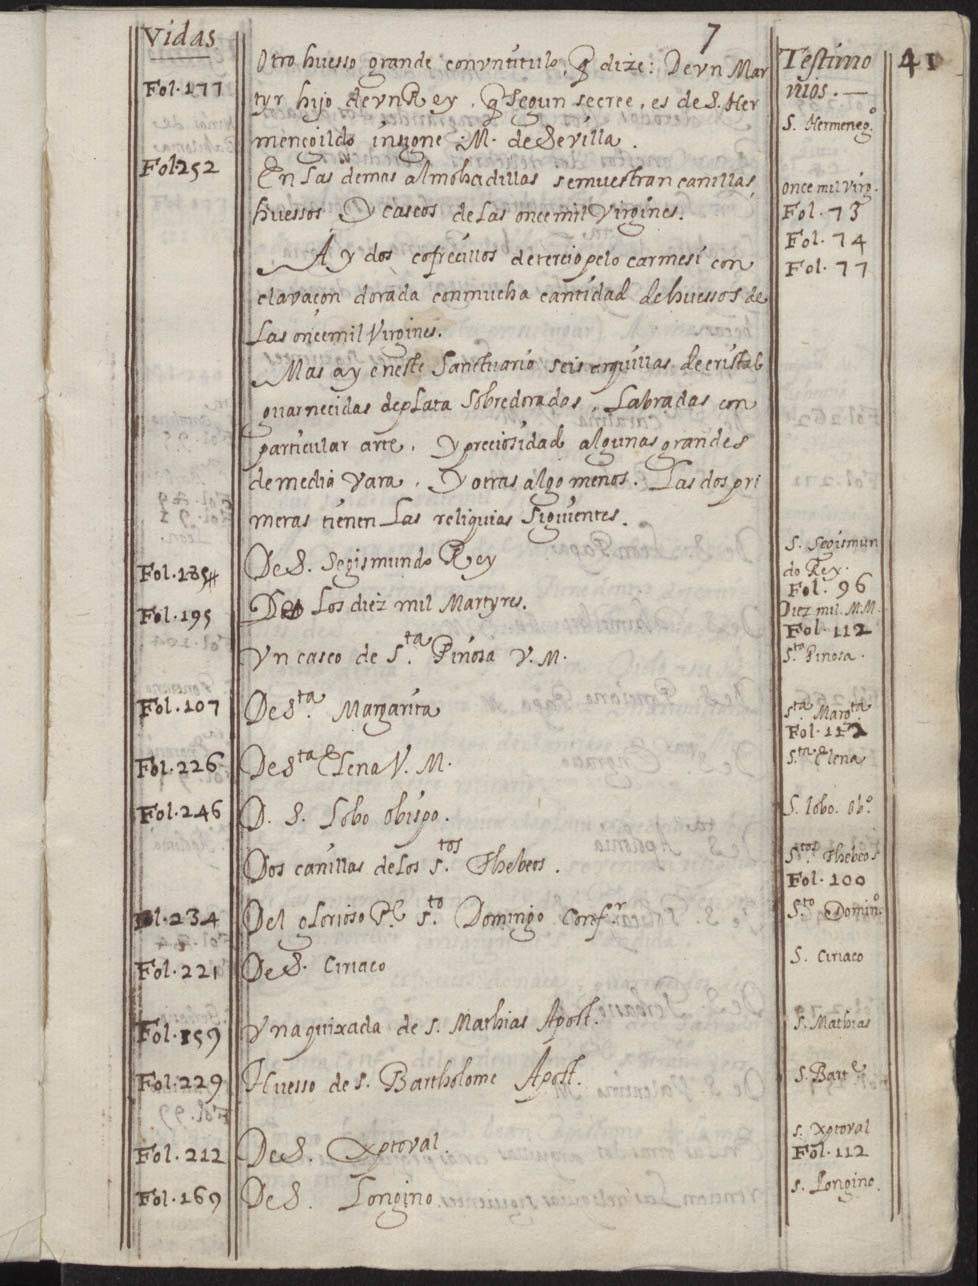 Vidas
7
Testimo
nios. —
41
Otro huesso grande con vn titulo, q̃ dize: De vn Mar
Fol. 177
tyr hijo de vn Rey, q̃ segun se cree, es de S. Her
S. Hermenegº
menegildo insigne M. de Sevilla.
Fol 252
En las demas almohadillas se muestran canillas
once mil Virg.
huessos y cascos de las once mil Virgines.
Fol. 73
Fol. 74
Ay dos cofrecillos de terciopelo carmesi con
Fol. 77
clavaçon dorada con mucha cantidad de huessos de
las once mil Virgines.
Mas ay en este Sanctuario seis arquillas de cristal
guarnecidas de plata sobredoradas, Labradas con
particular arte, y preciosidad algunas grandes
de media vara, y otras algo menos. Las dos pri
meras tienen Las reliquias siguientes.
Fol. 1854
De S. Segismundo Rey
S. Segismun
do Rey.
Fol. 96
Fol. 195
De Los diez mil Martyres.
Diez mil. M.M.
Fol. 112
Vn casco de S.ta Pinosa V. M.
S.ta Pinosa.
Fol. 107
De S.ta Margarita
S.ta Margta
Fol. 112
Fol. 226
De S.ta Elena V. M.
S.ta Elena
Fol. 246
D. S. Lobo Obispo.
S. lobo. Obº
Dos canillas de Los S.tos Thebeos.
S.tos Thebeos
Fol. 100
Fol. 234
Del glorioso Pe S.to Domingo Confr
S.to Dominº
Fol. 221
De S. Ciriaco
S. Ciriaco
Fol. 159
Vna quixada de S. Mathias Apost.
S. Mathias
Fol. 229
Huesso de S. Bartholome Apost.
S. Barte
Fol. 212
De S. Xptoval.
S. Xptoval
Fol. 112
Fol. 169
De S. Longino.
S. Longino.